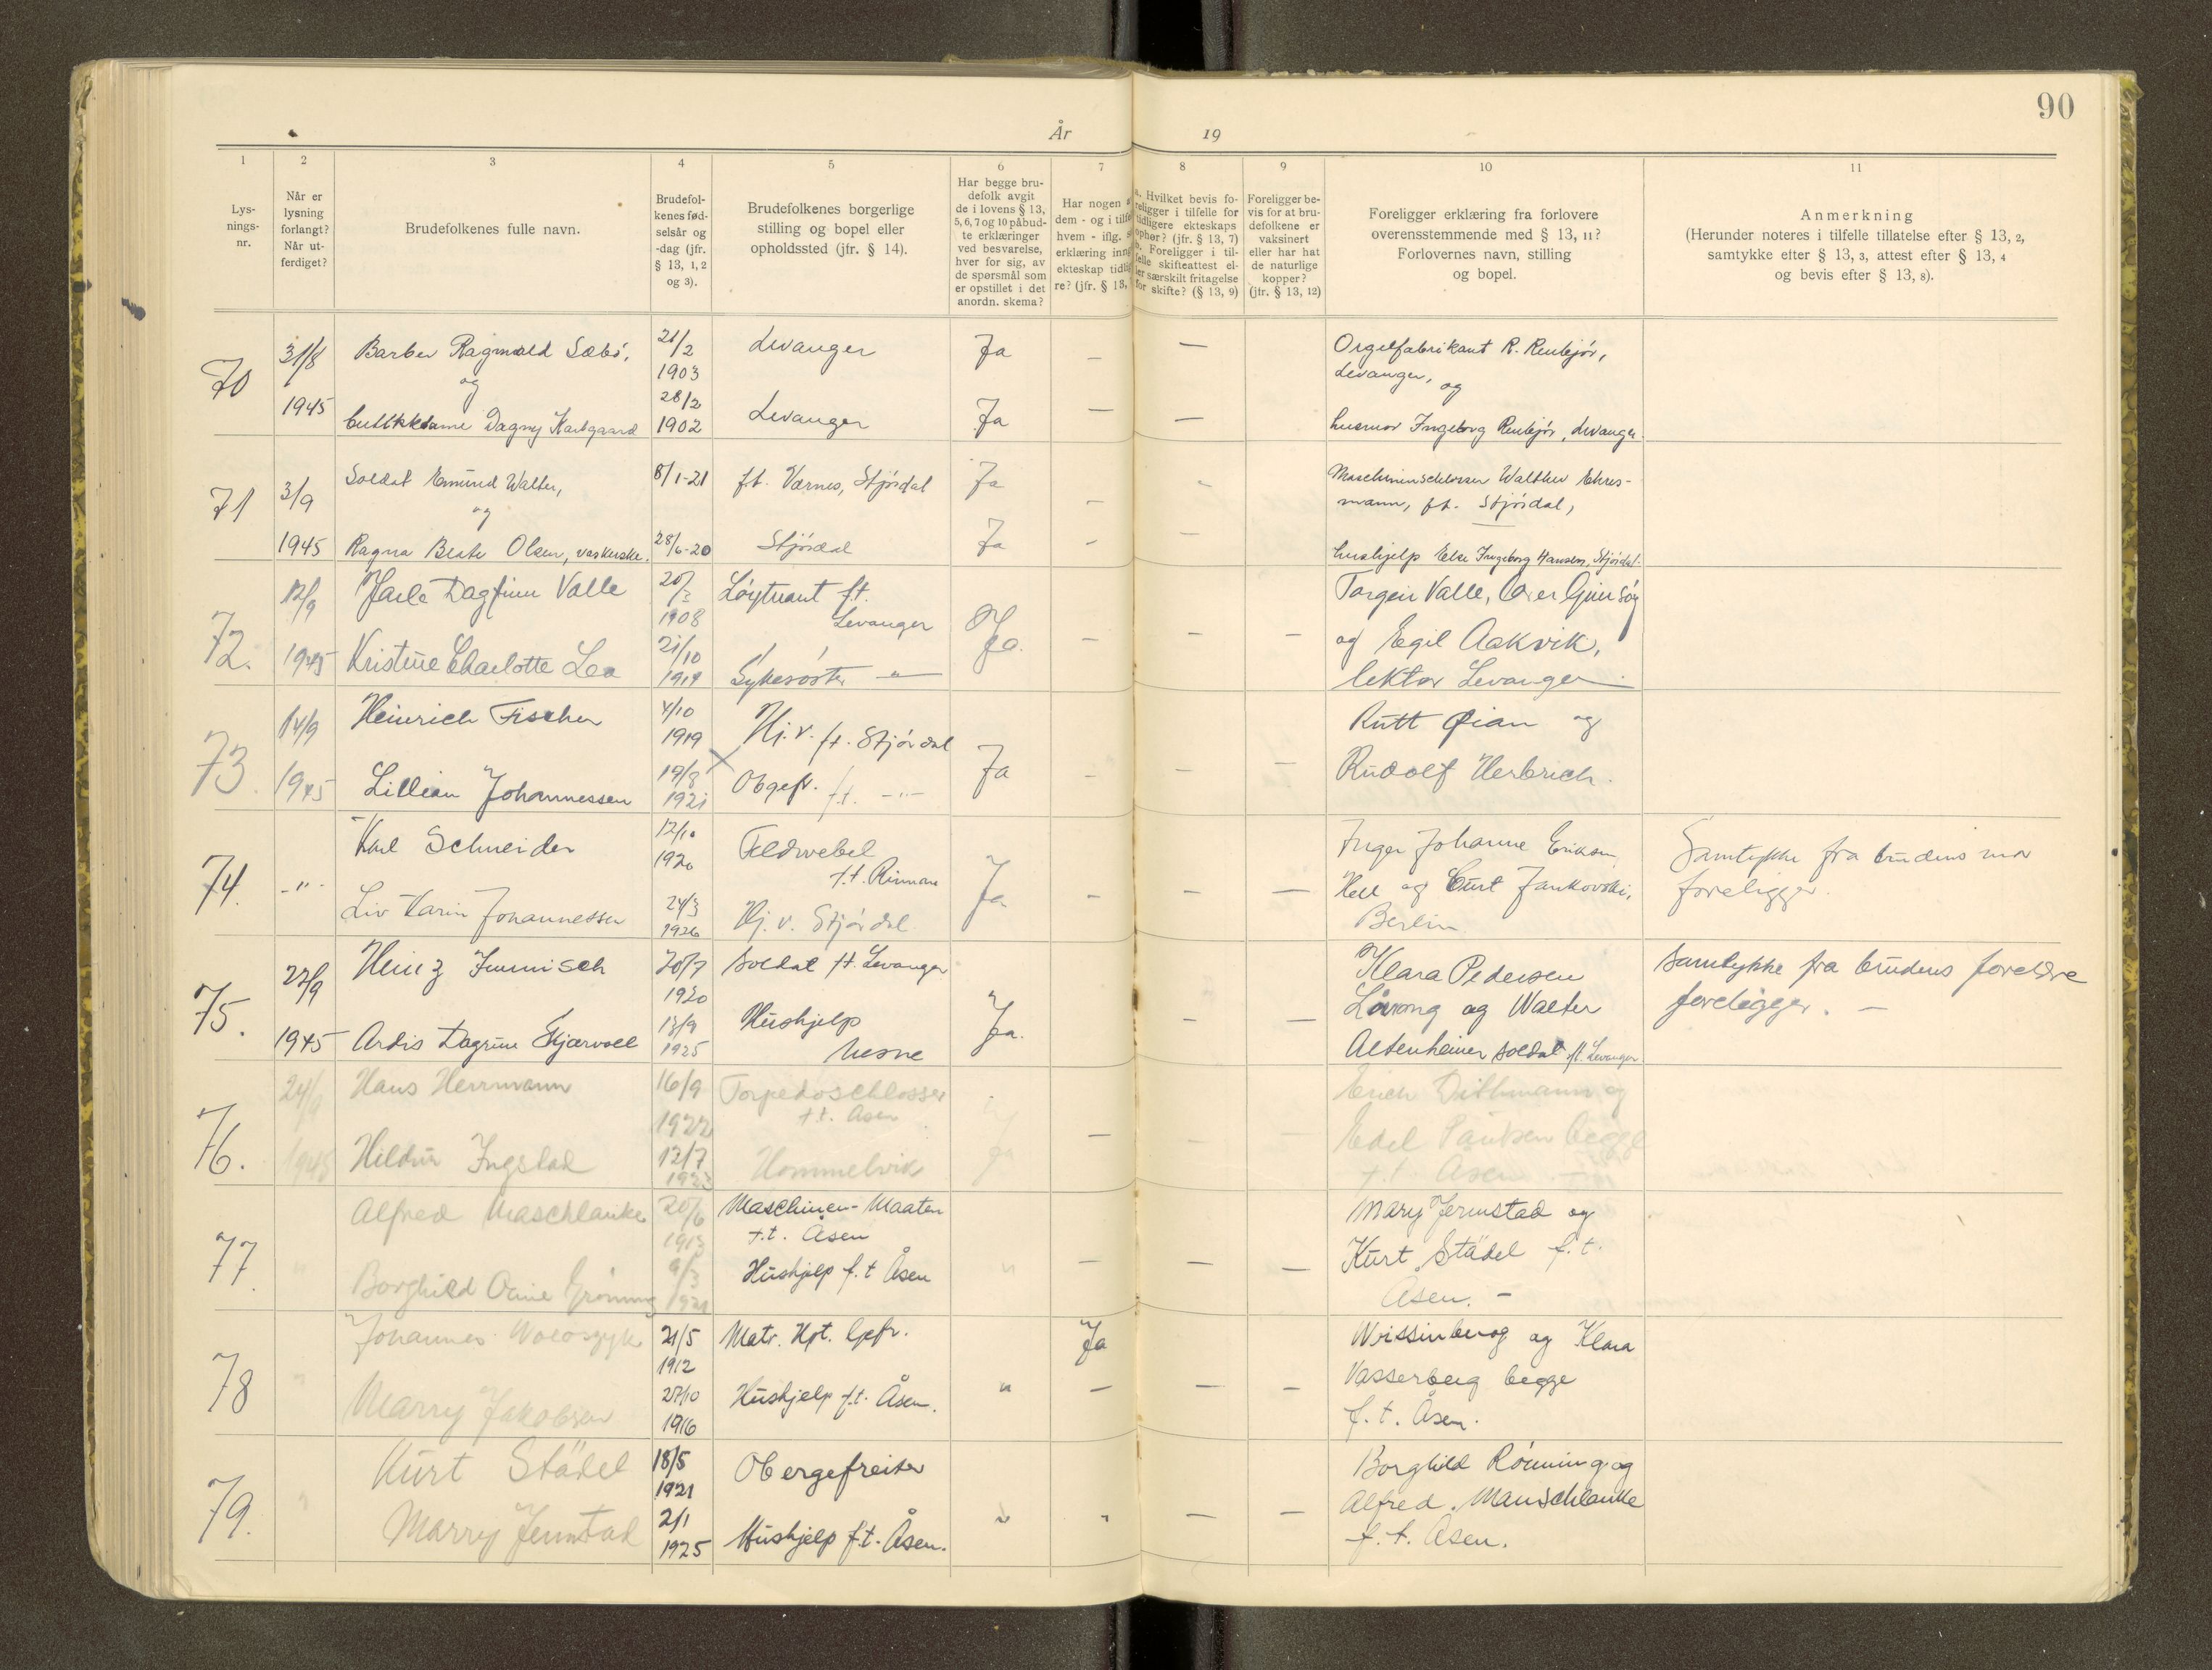 90
År 19
1 2 3 4 5 6 7 8 9 10 11
Lys-
nings-
nr.
Når er
lysning
forlangt?
Når ut-
ferdiget?
Brudefolkenes fulle navn.
Brudefol-
kenes fød-
selsår og
-dag (jfr.
§ 13, 1, 2
og 3).
Brudefolkenes borgerlige
stilling og bopel eller
opholdssted (jfr. § 14).
Har begge bru-
defolk avgit
de i lovens § 13,
5, 6, 7 og 10 påbud-
te erklæringer
ved besvarelse,
hver for sig, av
de spørsmål som
er opstillet i det
anordn. skema?
Har nogen
dem - og i tilf
hvem - iflg.
erklæring inng
ekteskap tidlig
re? (jfr. § 13,
a. Hvilket bevis fo-
religger i tilfelle for
tidligere ekteskaps
ophør? (jfr. § 13, 7)
b. Foreligger i til-
felle skifteattest el-
ler særskilt fritagelse
for skifte? (§ 13, 9)
Foreligger be-
vis for at bru-
defolkene er
vaksinert
eller har hat
de naturlige
kopper?
(jfr. § 13, 12)
Foreligger erklæring fra forlovere
overensstemmende med § 13, 11?
Forlovernes navn, stilling
og bopel.
Anmerkning
(Herunder noteres i tilfelle tillatelse efter § 13, 2,
samtykke efter § 13, 3, attest efter § 13, 4
og bevis efter § 13, 8).
70
31/8
1945
Barber Ragnvald Sæbö,
og
Dagny
21/2
1903
28/2
1902
Levanger
Levanger
Ja
Ja
— —
— —
Orgelfabrikant R.
Levanger, og
husmor Ingeborg , Levanger.
71
3/9
1945
Soldat Emund Walter,
og
Ragna Beate Olsen, vaskerske.
8/1-21
28/6-20
f.t. Værnes, Stjördal
Stjördal
Ja
Ja
— —
— —
Maschinenschlosser Walther Ehres-
mann, f.t. Stjördal,
hushjelp Else Ingeborg Hansen, Stjördal.
72.
12/9
1945
Jarle Dagfinn Valle
Kristine Charlotte Lea
1908
21/10
1919
Löytnant f.t.
Levanger
Sykesöster —"—
Ja.
— — —
Torgeir Valle,
og Egil Aakvik,
lektor Levanger
73.
14/9
1945
Heinrich Fischer
Lillian Johannessen
4/10
1919
19/8
1921
Hj.v. f.t. Stjördal
Obgefr. f.t. —"—
Ja
— — —
Rutt Øian og
Rudolf Herbrich.
74.
-"-
Karl Schneider
Liv Karin Johannessen
12/10
1920
24/3
1926
Feldwebel
f.t. Rinnan
Hj. v. Stjördal
Ja
— — —
Inger Johanne Eriksen,
Hell og Curt Jankovski,
Berlin
Samtykke fra brudens mor
foreligger.
75.
22/9
1945
Heinz Immisch
Ardis Dagrun Skjærvoll
20/7
1920
13/9
1925
Soldat f.t. Levanger
Hushjelp
Mosne
Ja.
— —
Klara Pedersen
og Walter
Altenheimer soldat f.t. Levanger.
Samtykke fra brudens foreldre
foreligger. —
76.
24/9
1945
Hans Herrmann
Hildur Ingstad
16/9
1922
12/7
1923
Torpedoschlosser
f.t. Åsen
Hommelvik
Ja
— — —
Erich Dithmann og
Edel Paulsen begge
f.t. Åsen —
77.
"
Alfred Maschlanke
Borghild Grönning
20/6
1913
9/3
1921
Maschinen-Maaten
f.t. Åsen
Hushjelp f.t Åsen
"
— — —
Mary Jermstad og
Kurt Städel f.t.
Åsen. —
78
"
Johannes
Marry Jakobsen
21/5
1912
27/10
1916
Matr. Hpt. Gefr.
Hushjelp f.t. Åsen.
"
Ja
— — —
og Klara
Vasserberg begge
f.t. Åsen.
79.
"
Kurt Städel
Marry Jermstad
18/5
1921
2/1
1925
Obergefreiter
Hushjelp f.t. Åsen.
"
" — —
Borghild Rönning og
Alfred Manschlanke
f.t. Åsen.